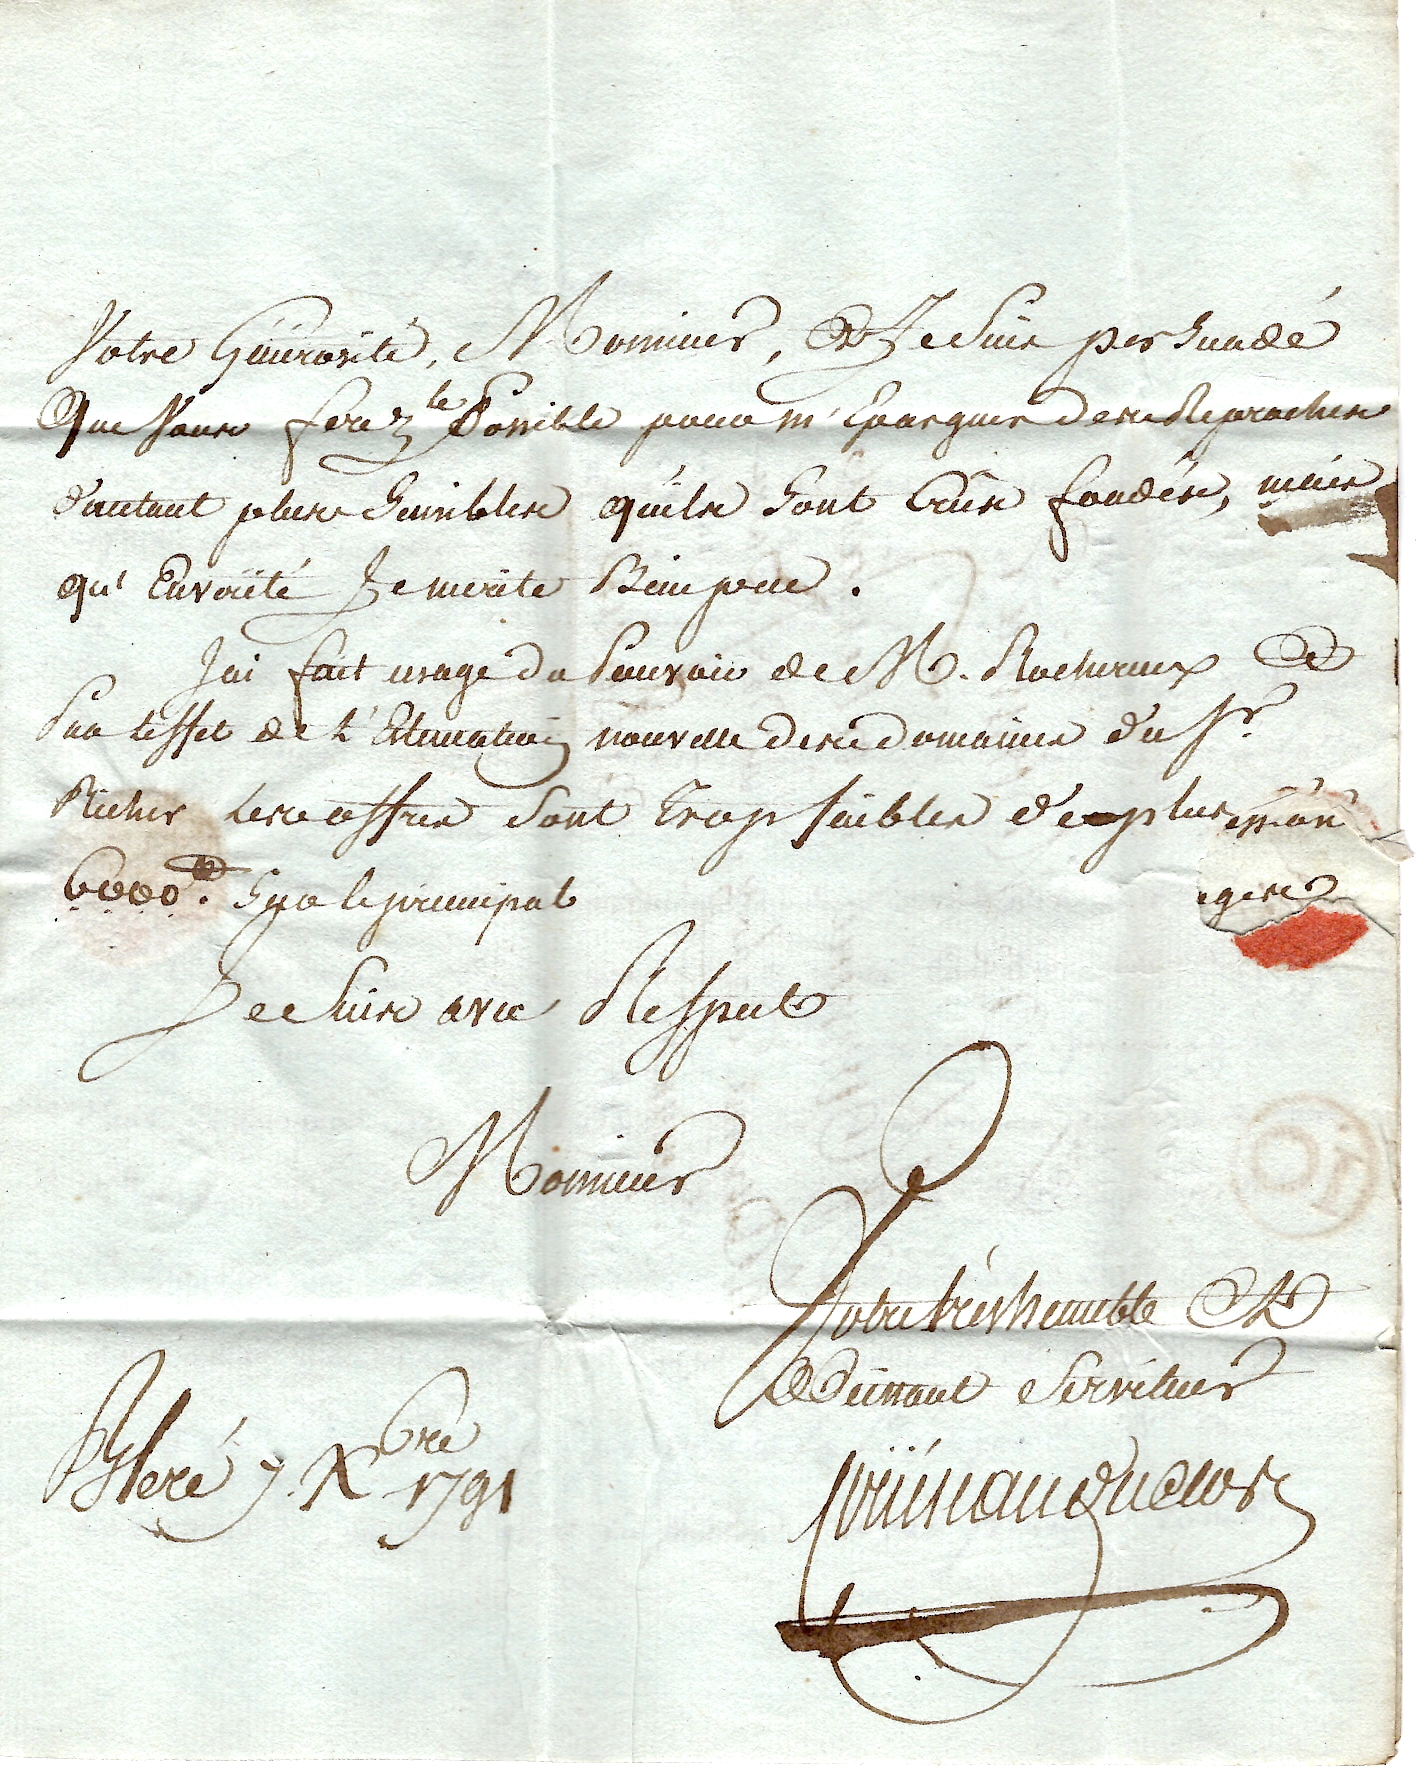 Votre Générosité, Monsieur, et Je Suis persuadé
Que Vous ferez le Possible pour m'Epargner des Reproches
d'autant plus Sensibles qu'ils Sont très fondés, mais
qu'En vérité Je mérite Bien peu.
J'ai fait usage du Pouvoir de M. Rochereux et
Sur l'effet de l'Estimation nouvelle des domaines du Sr.
Richer les offres Sont Trop faibles de plus
6000tt. Sur le principal
Je Suis avec Respect
Monsieur
Votre très humble Et
Obéissant Serviteur
Bleré 7 Xbre 1791